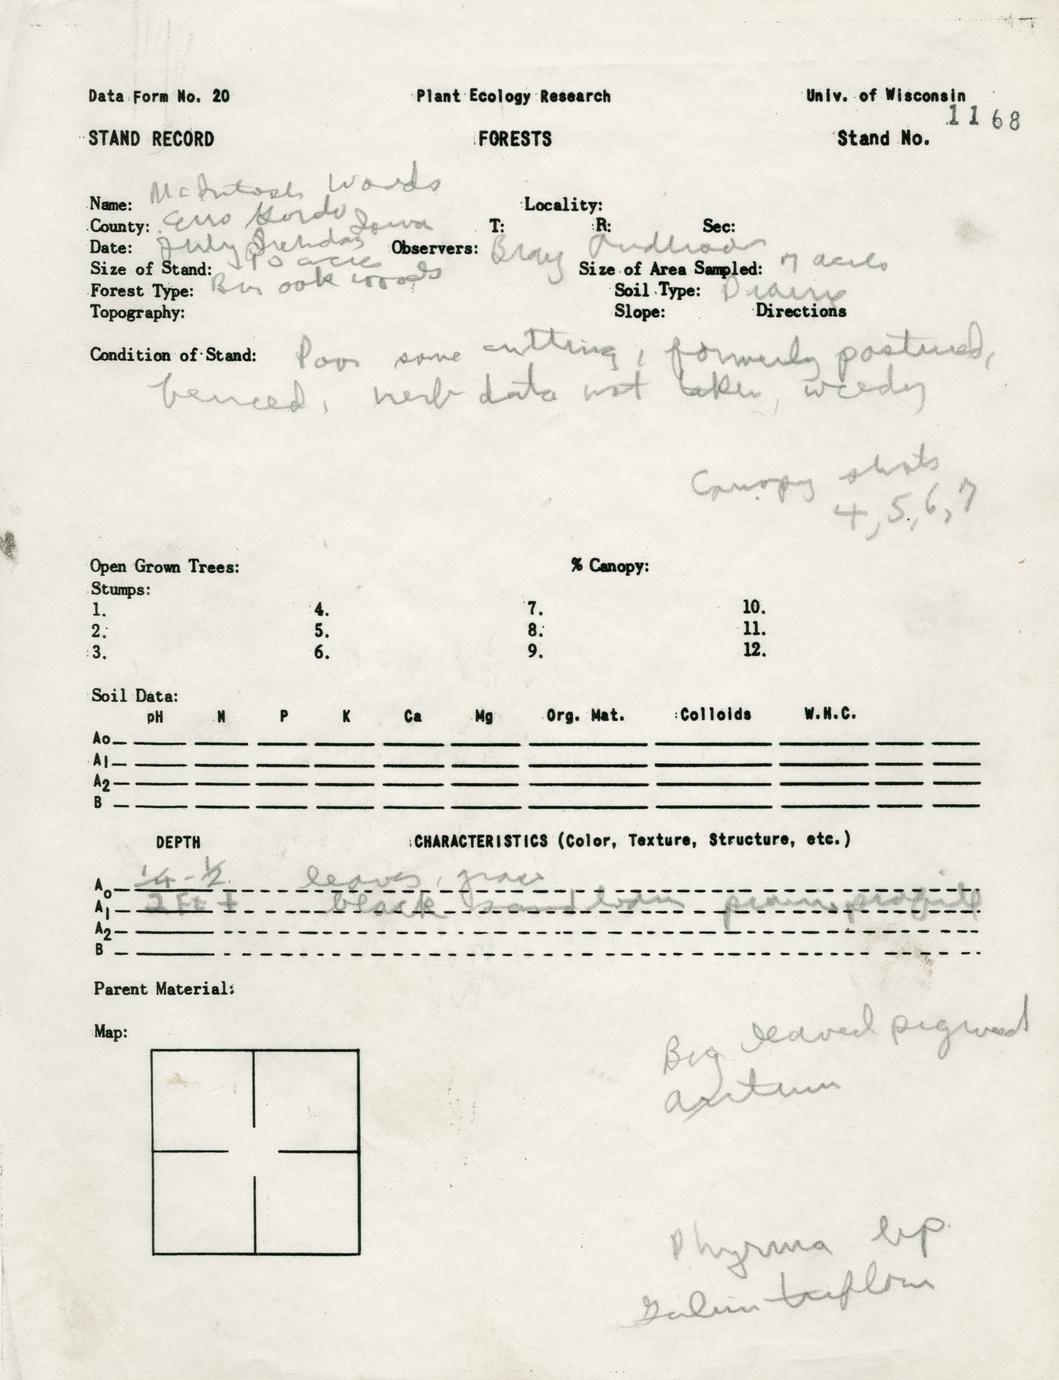 Data Form No. 20 Plant Ecology Research Univ. of Wisconsin
1168
STAND RECORD FORESTS Stand No.
Name: McIntosh Woods Locality:
County: Cerro Gordo Iowa T: R: Sec:
Date: July Observers: Bray
Size of Stand: 15 acres Size of Area Sampled: 7 acres
Forest Type: Bur oak woods Soil Type:
Topography: Slope: Directions
Condition of Stand: Poor some cutting, formerly pastured,
fenced, herb data not taken, weedy
Canopy shots
4, 5, 6, 7
Open Grown Trees: % Canopy:
Stumps:
1. 4. 7. 10.
2. 5. 8. 11.
3. 6. 9. 12.
Soil Data:
pH N P K Ca Mg Org. Mat. Colloids W.H.C.
Ao
A1
A2
B
DEPTH CHARACTERISTICS (Color, Texture, Structure, etc.)
Ao 1/4 - 1/2 leaves, grass
A1 2 Ft ± black sand loam prairie profile
A2
B
Parent Material:
Map:
Big leaved pigweed
Phryma lep
Galium triflorum